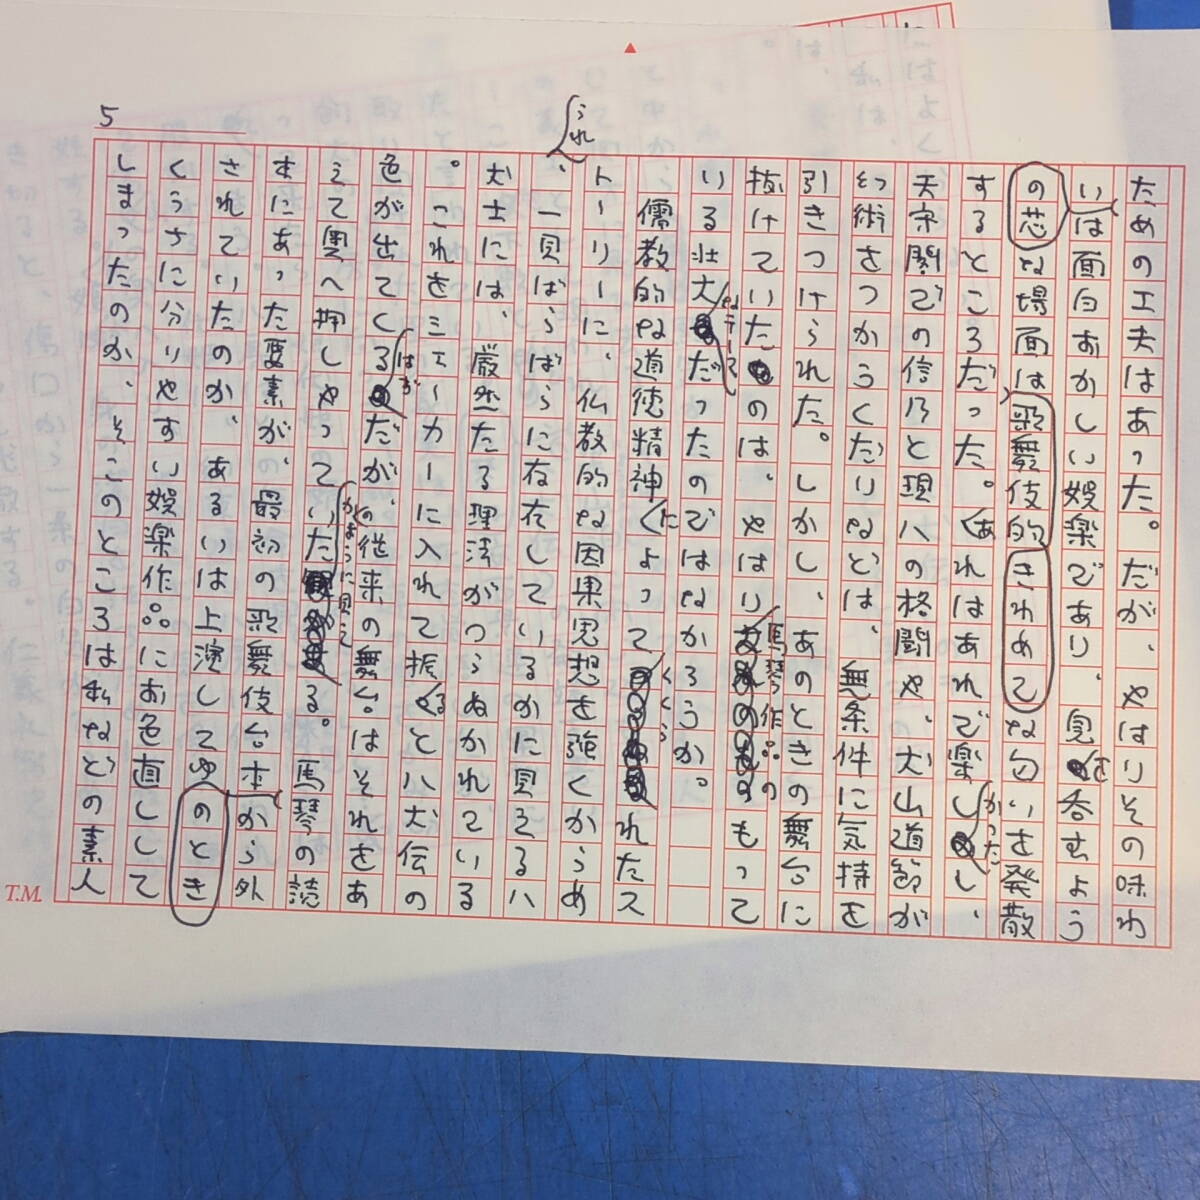 ための工夫はあった。だが、やはりその味わ
いは面白おかしい娯楽であり、息を呑むよう
の芯な場面は、歌舞伎的きわめてな匂いを発散
するところだった。あれはあれで楽しかったし、
天守閣での信乃と現八の格闘や、犬山道節が
幻術をつかうくだりなどは、無条件に気持を
引きつけられた。しかし、あのときの舞台に
抜けていたのは、やはり馬琴作品のもって
いる壮大なテーマだったのではなかろうか。
儒教的な道徳精神によってつくられたス
トーリーに、仏教的な因果思想を強くからめ
うれ
、一見ばらばらに存在しているかに見える八
犬士には、厳然たる理法がつらぬかれている
。これをミキーカーに入れて振ると八犬伝の
色が出てくるはずだが、従来の舞台はそれをあ
えて奥へ押しやっていたかのように見える。馬琴の読
本にあった要素が、最初の歌舞伎台本から外
されていたのか、あるいは上演してゆのとき
くうちに分りやすい娯楽作品にお色直しして
しまったのか、そこのところは私などの素人
5
T.M.